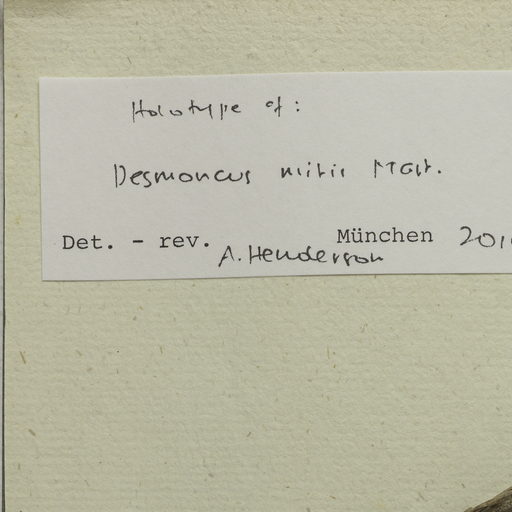 Holotype of:
Desmoncus mitis Mart.
Det. - rev. A. Henderson München